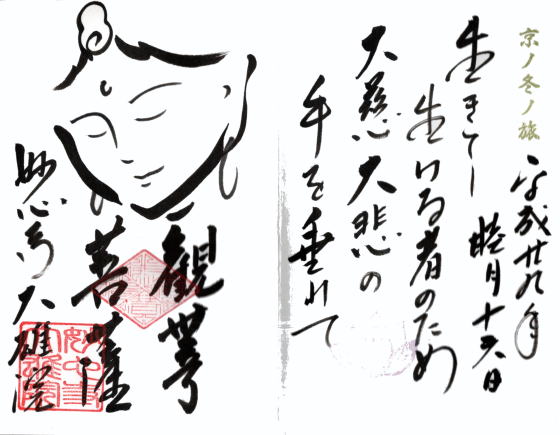 京ノ冬ノ旅
平成廿九年
睦月十六日
生きとし
生ける者のため
大慈大悲の
手を垂れて
觀世音
菩薩
妙心寺大雄院